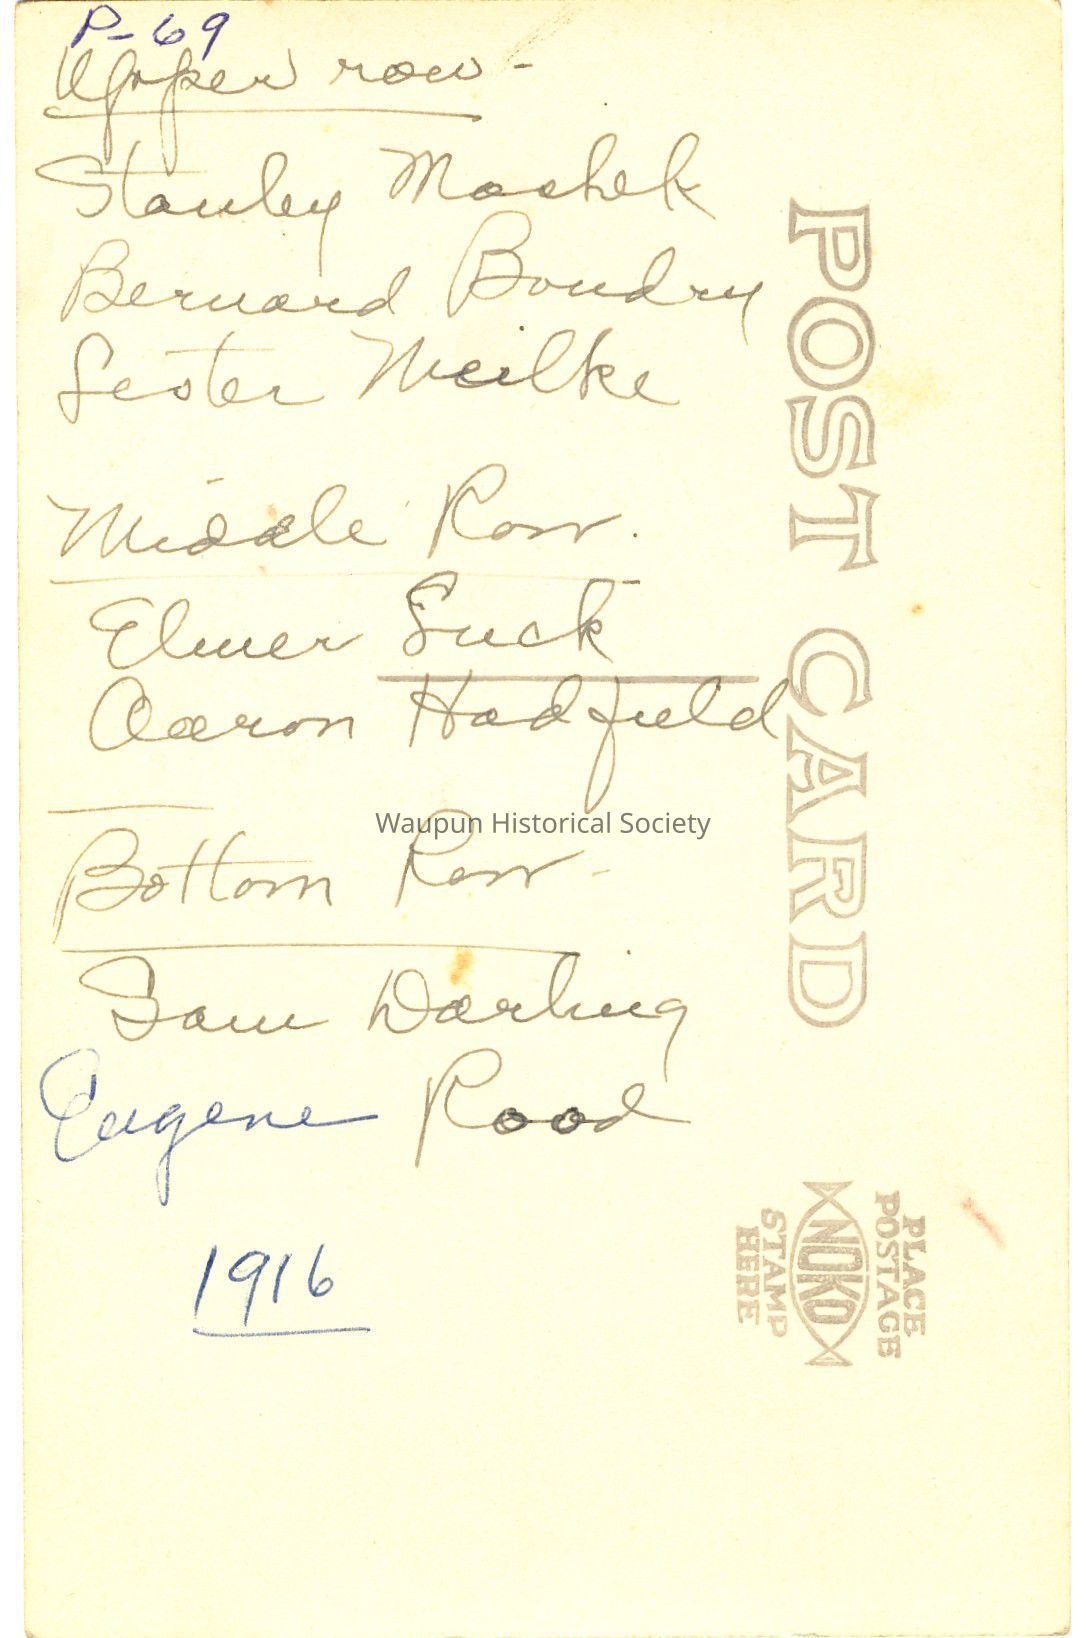 P-69
Upper row -
Stanley Mashek
Bernard Boudry
Lester Meilke
Middle Row.
Elmer Luck
Aaron Hadfield
Waupun Historical Society
Bottom Row -
Sam Darling
Eugene Rood
1916
POST CARD
PLACE
POSTAGE
NOKO
STAMP
HERE